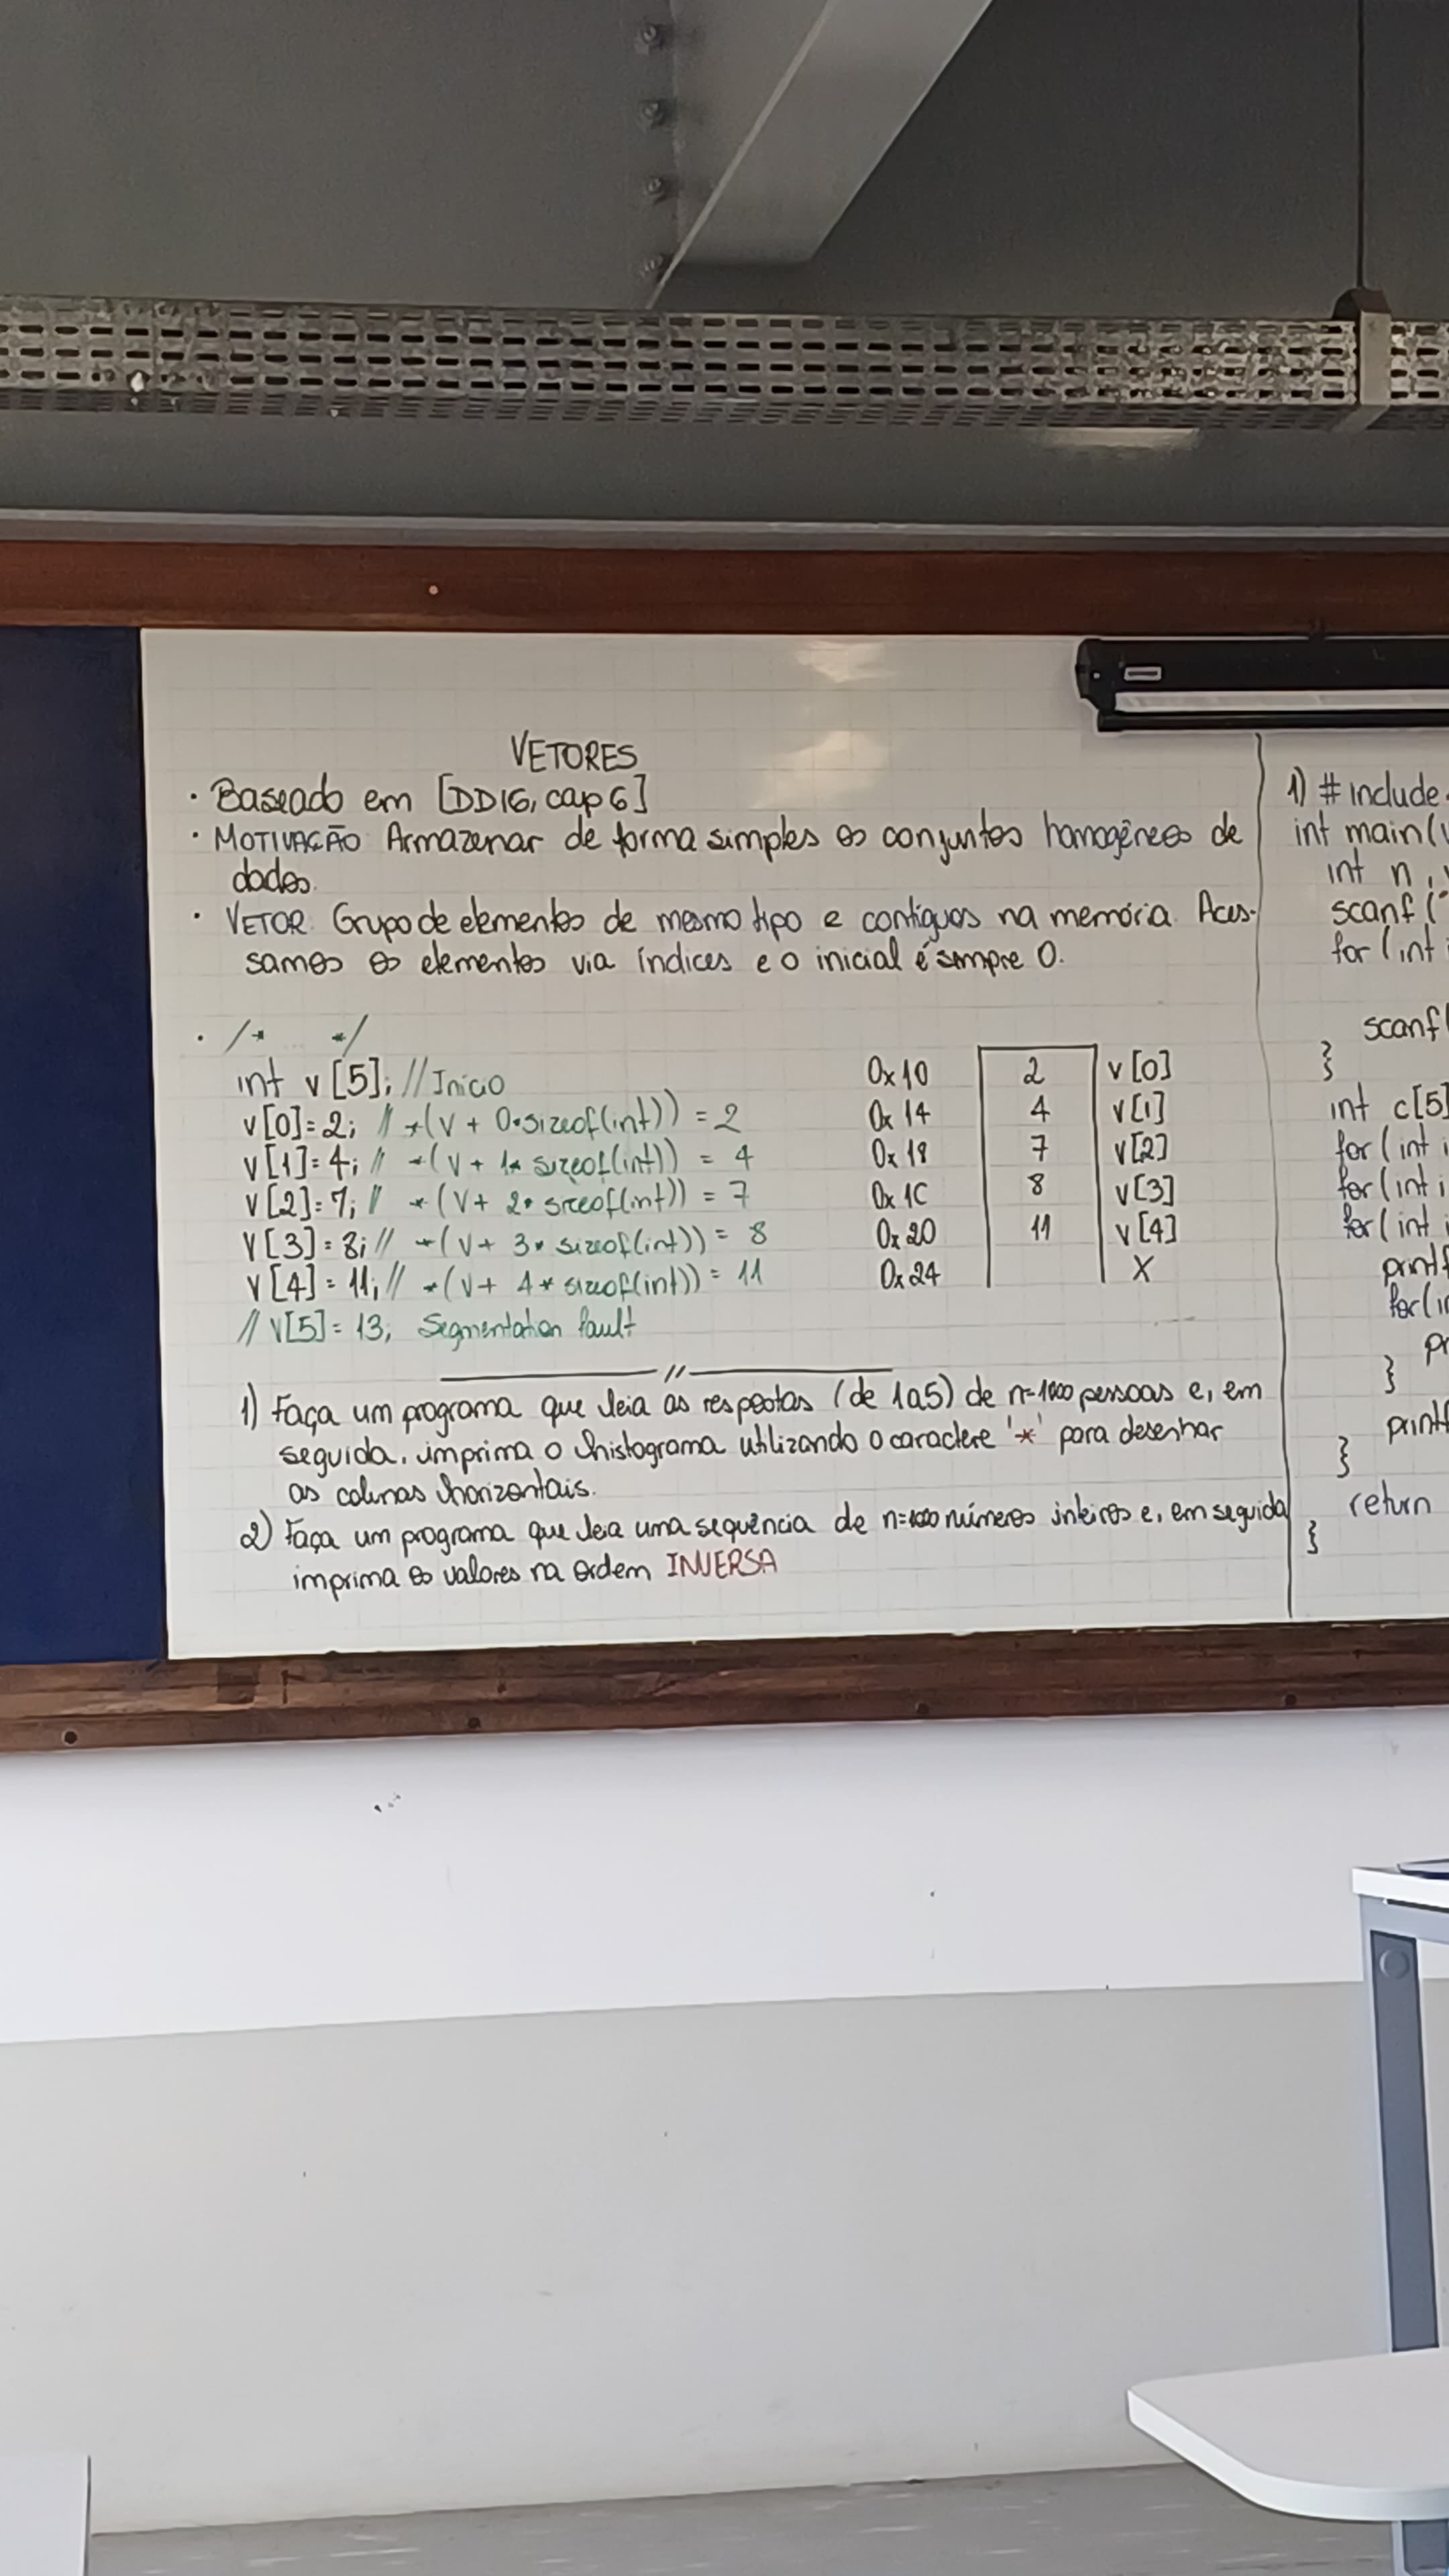 VETORES
· Baseado em [DD16, cap 6]
· MOTIVAÇÃO Armazenar de forma simples os conjuntos homogêneos de
dados.
· VETOR. Grupo de elementos de mesmo tipo e contíguos na memória. Aces-
samos os elementos via índices e o inicial é sempre 0.
· /* */
int v[5]; // Início
v[0]=2; // *(v + 0*sizeof(int)) = 2
v[1]=4; // *(v + 1* sizeof(int)) = 4
v[2]=7; // *(v + 2* sizeof(int)) = 7
v[3]=8; // *(v+ 3* sizeof(int)) = 8
v[4] = 11; // *(v+ 4* sizeof(int)) = 11
// v[5]=13; Segmentation fault
0x10 2 v[0]
0x14 4 v[1]
0x18 7 v[2]
0x1C 8 v[3]
0x20 11 v[4]
0x24 X
//
1) Faça um programa que leia as respostas (de 1 a 5) de n=1000 pessoas e, em
seguida, imprima o histograma utilizando o caractere '*' para desenhar
as colunas horizontais.
2) Faça um programa que leia uma sequência de n=1000 números inteiros e, em seguida
imprima os valores na ordem INVERSA
1) #include
int main(
int n,
scanf("
for (int i
scanf(
}
int c[5]
for (int i
for (int i
for (int i
printf
for(in
pr
}
printf
}
return
}